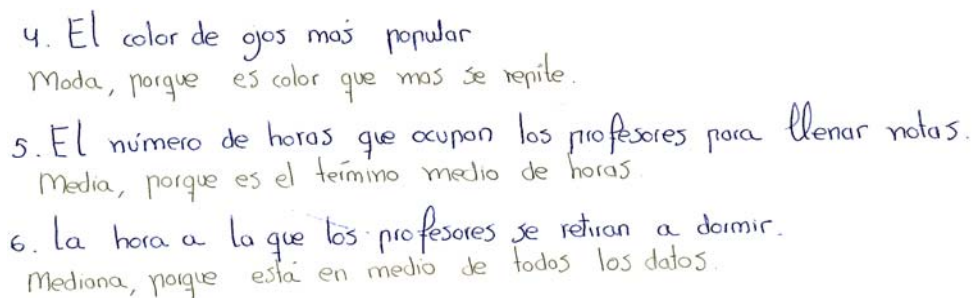 4. El color de ojos más popular
Moda, porque es color que mas se repite.
5. El número de horas que ocupan los profesores para llenar notas.
Media, porque es el término medio de horas
6. La hora a la que los profesores se retiran a dormir.
Mediana, porque está en medio de todos los datos.